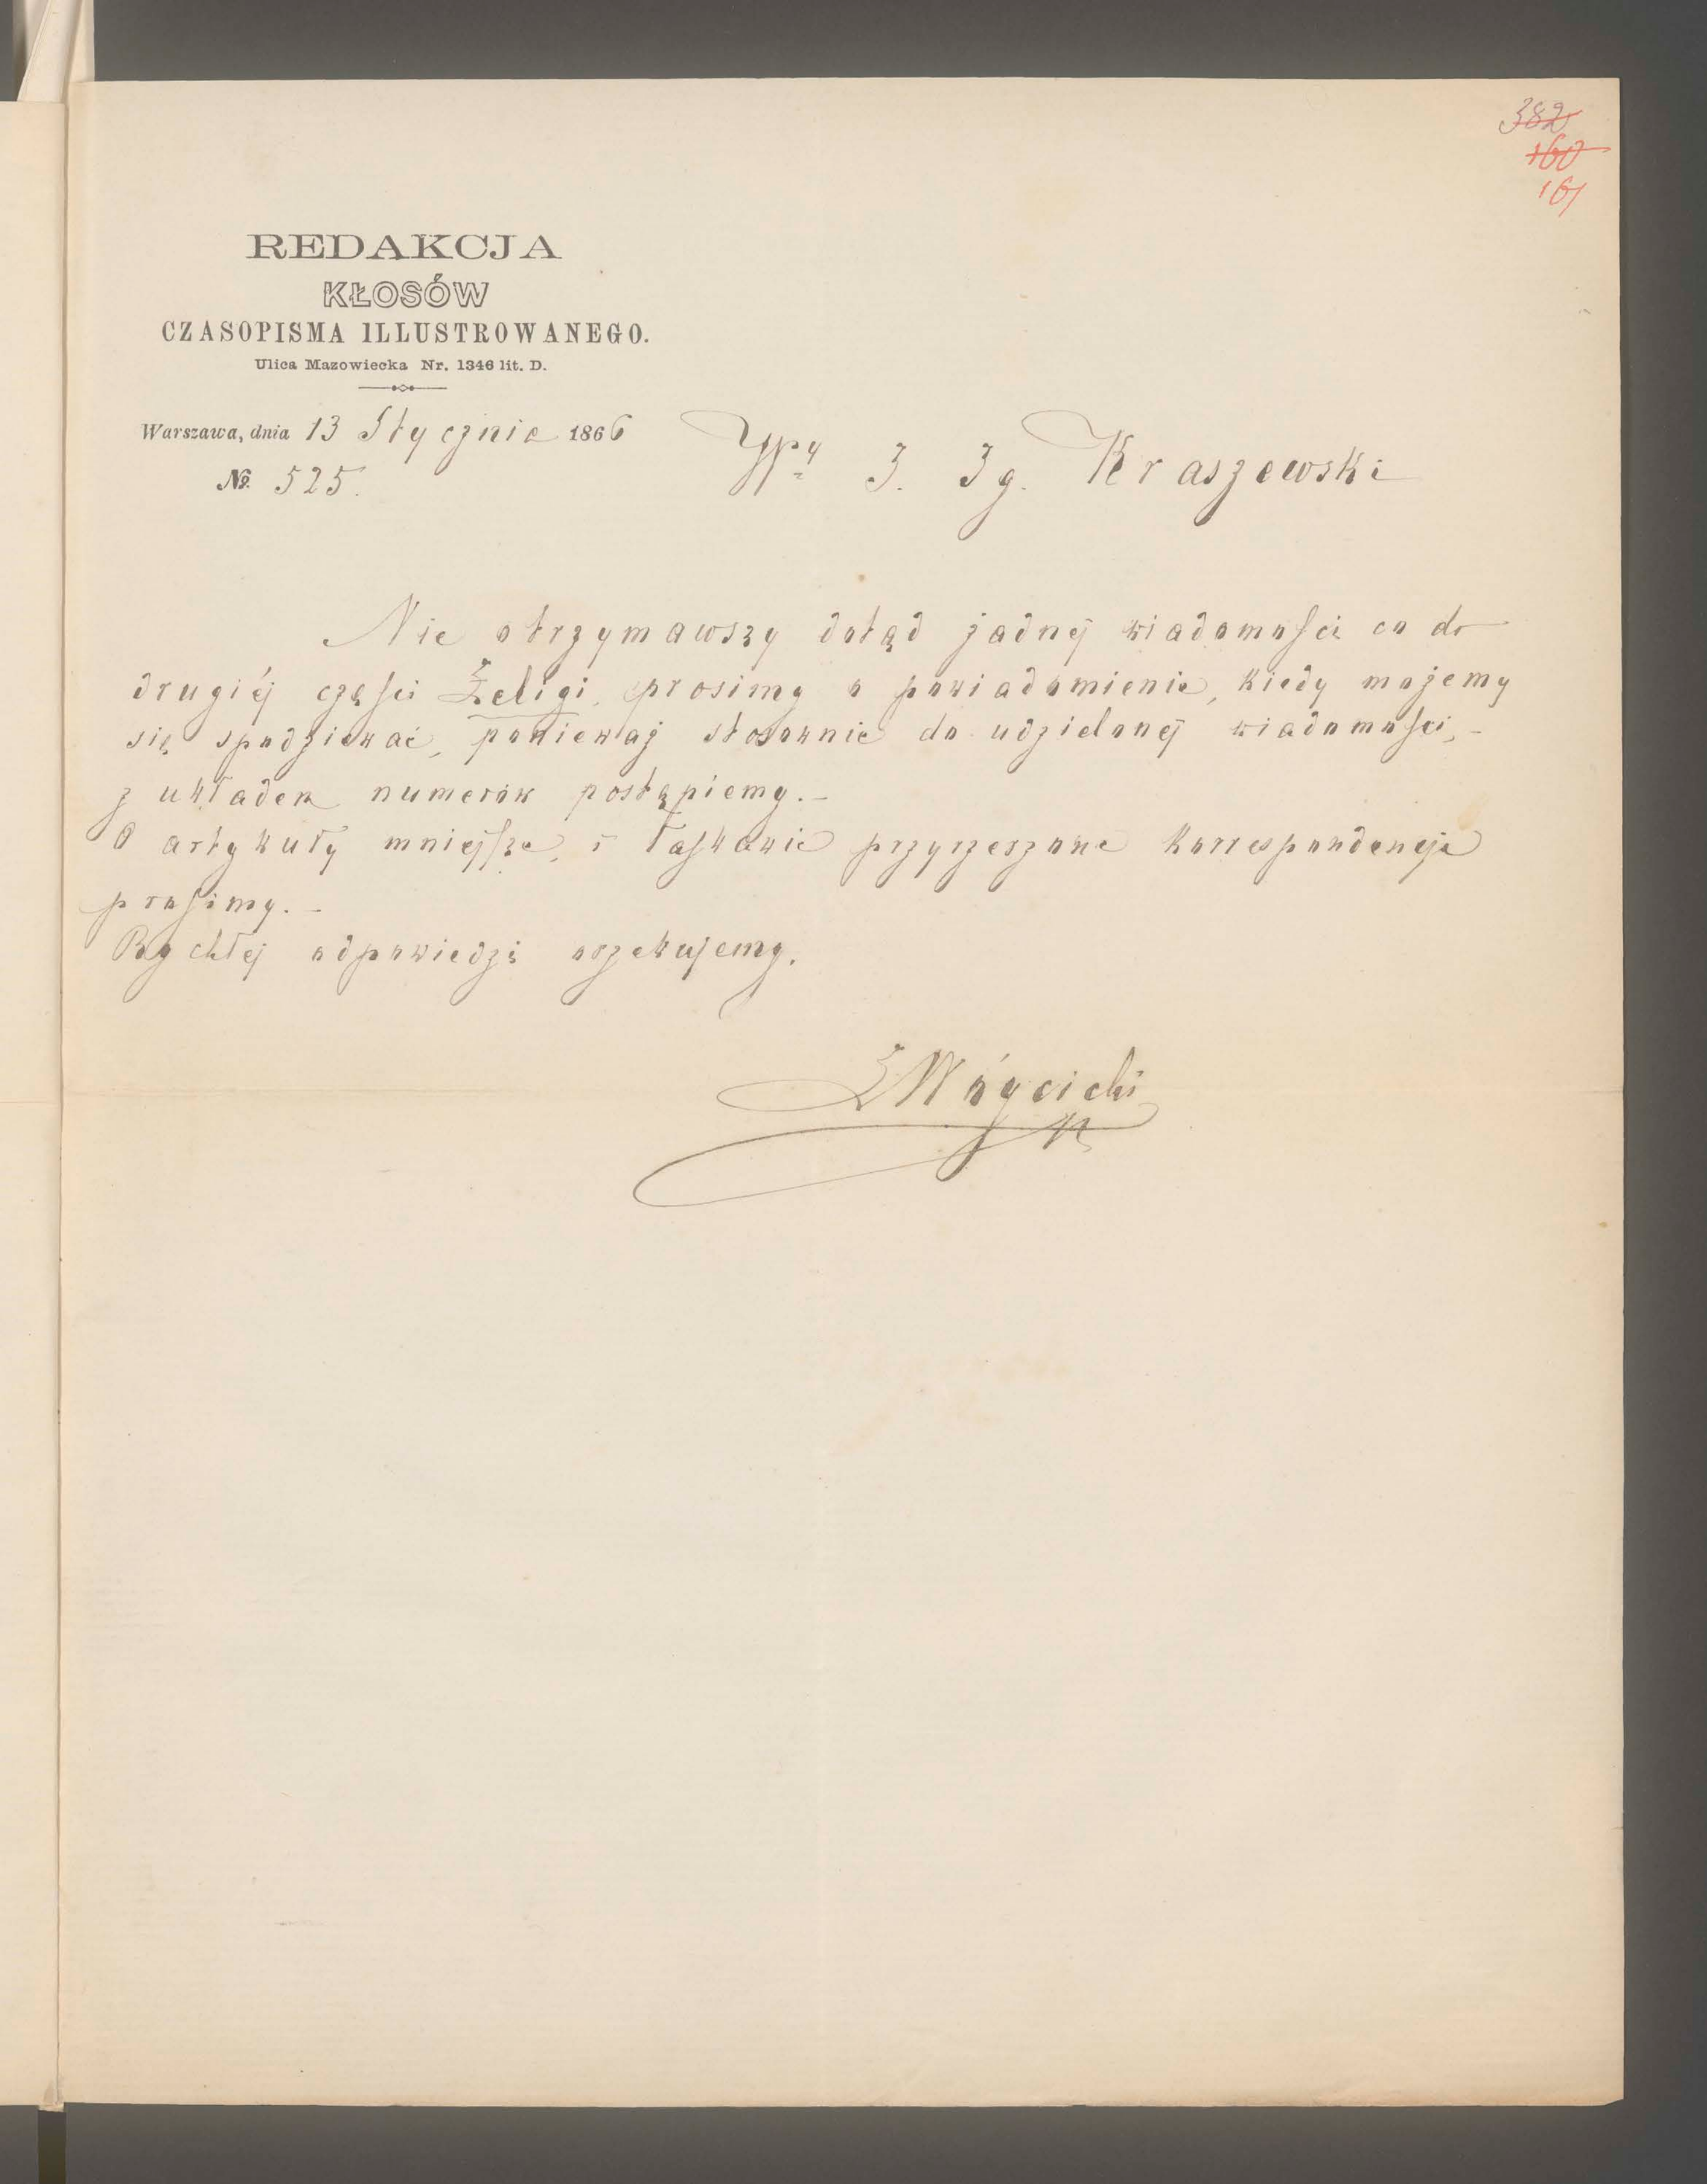 382
160
161
REDAKCJA
KŁOSÓW
CZASOPISMA ILLUSTROWANEGO.
Ulica Mazowiecka Nr. 1346 lit. D.
Warszawa, dnia 13 Stycznia 1866
№ 525.
Wny J. Ig. Kraszewski
Nie otrzymawszy dotąd żadnej wiadomości co do
drugiéj części Zeligi, prosimy o powiadomienie, kiedy możemy
się spodziewać, ponieważ stosownie do udzielonej wiadomości, -
z układem numerów postąpiemy. -
O artykuły mniejsze, i łaskawie przyrzeczone korrespondencje
prosimy. -
Rychłej odpowiedzi oczekujemy.
Wóycicki